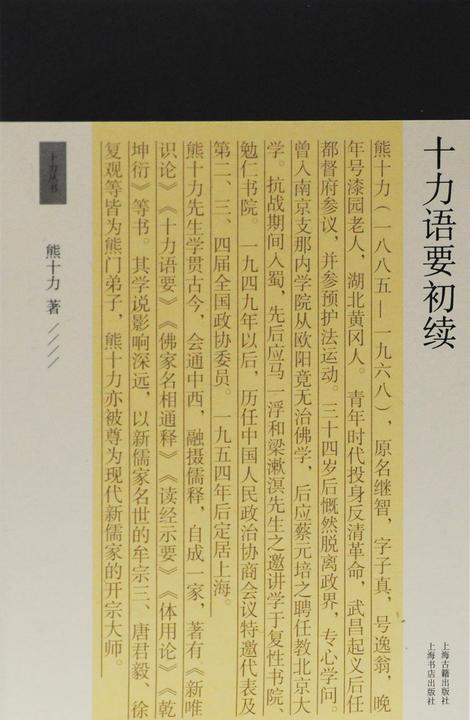 十力语要初续
熊十力（一八八五—一九六八），原名继智，字子真，号逸翁，晚
年号漆园老人，湖北黄冈人。青年时代投身反清革命，武昌起义后任
都督府参议，并参预护法运动。三十四岁后慨然脱离政界，专心学问。
曾入南京支那内学院从欧阳竟无治佛学，后应蔡元培之聘任教北京大
学。抗战期间入蜀，先后应马一浮和梁漱溟先生之邀讲学于复性书院、
勉仁书院。一九四九年以后，历任中国人民政治协商会议特邀代表及
第二、三、四届全国政协委员。一九五四年后定居上海。
熊十力先生学贯古今，会通中西，融摄儒释，自成一家，著有《新唯
识论》《十力语要》《佛家名相通释》《读经示要》《体用论》《乾
坤衍》等书。其学说影响深远，以新儒家名世的牟宗三、唐君毅、徐
复观等皆为熊门弟子，熊十力亦被尊为现代新儒家的开宗大师。
十力丛书
熊十力 著////
上海古籍出版社
上海书店出版社